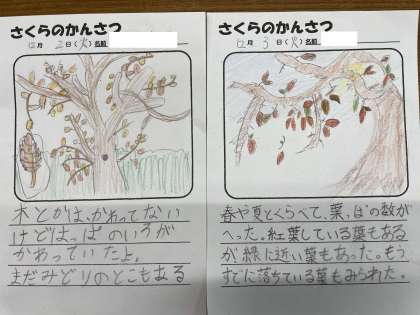 さくらのかんさつ
12月 2日(火) 名前
木とかは、かわってない
けどはっぱのいろが
かわっていたよ。
まだみどりのとこもある
さくらのかんさつ
12月 3日(火) 名前
春や夏とくらべて、葉っぱの数が
へった。紅葉している葉もある
が緑に近い葉もあった。もう
すでに落ちている葉もみられた。